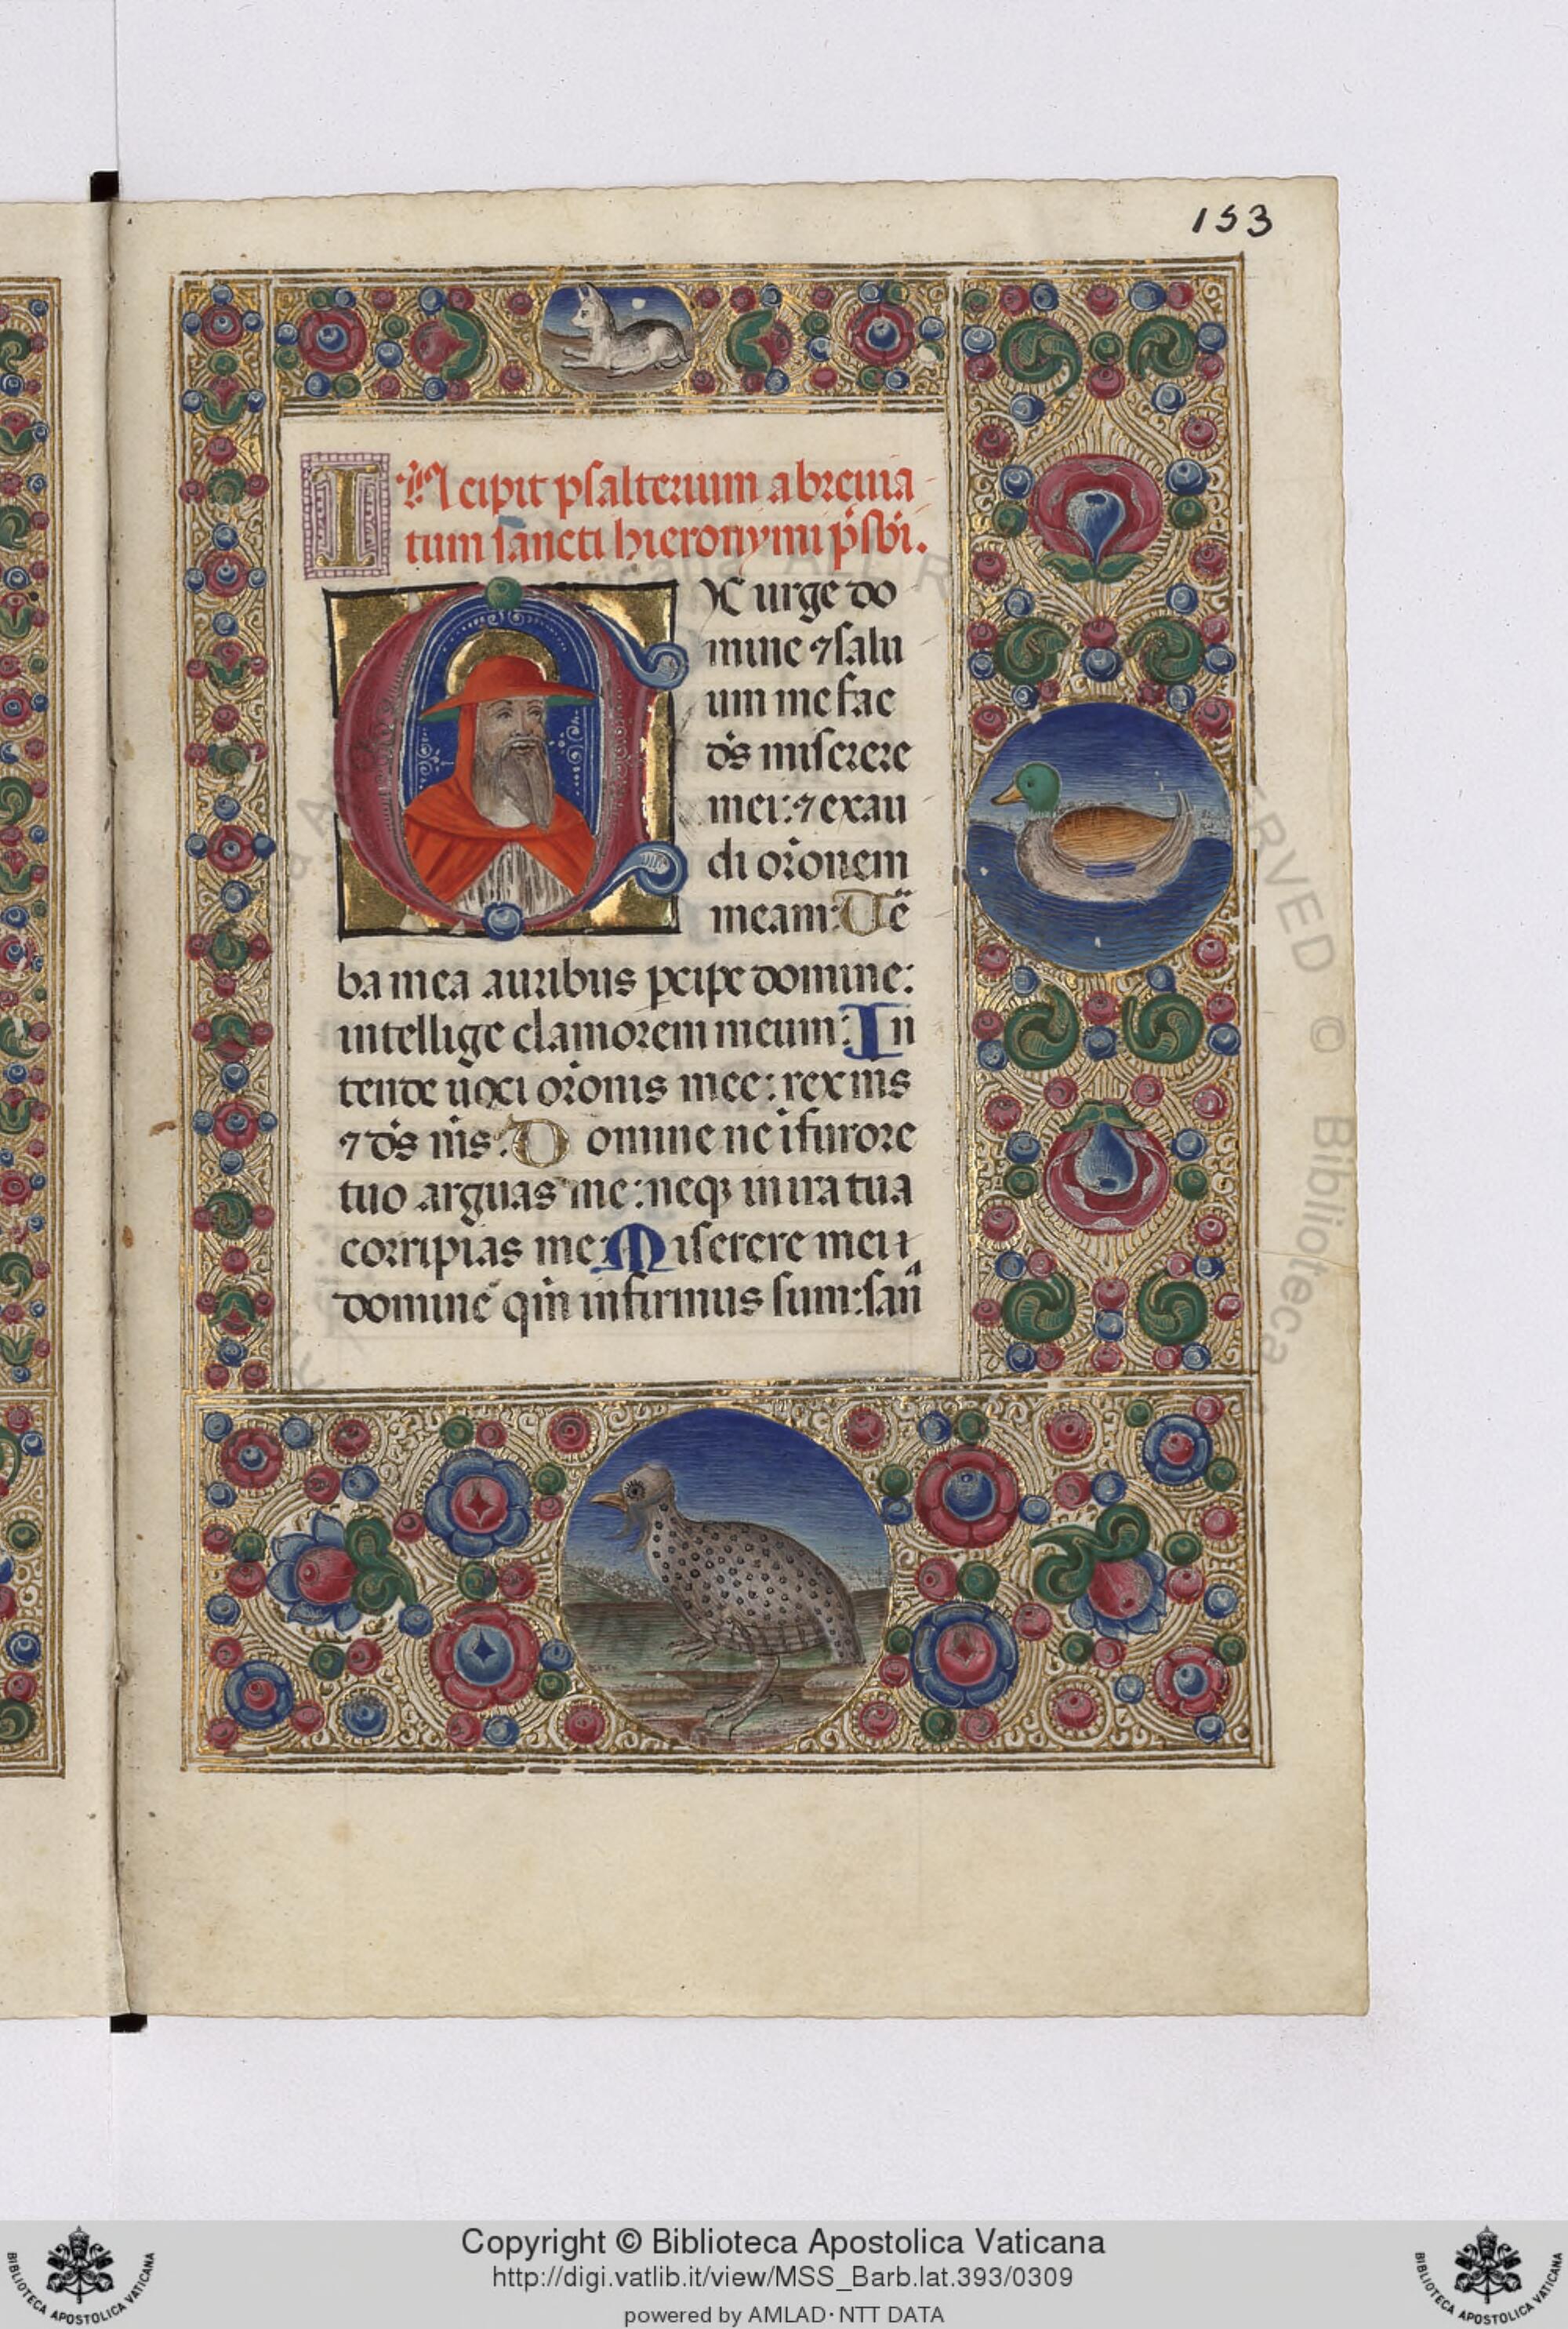 153
INcipit psalterium abreuia-
tum sancti hieronymi p̄sb̄i.
EXurge do
mine ⁊ salu
um me fac
ds̄ miserere
mei: ⁊ exau
di or̄onem
meam: Ve᷑
ba mea auribus ꝑcipe domine:
intellige clamorem meum: In
tende uoci or̄onis mee: rex ms̄
⁊ ds̄ ms̄: Domine ne ī furore
tuo arguas me: neqꝫ in ira tua
corripias me: Miserere mei
domine qm̄ infirmus sum: san
Copyright © Biblioteca Apostolica Vaticana
http://digi.vatlib.it/view/MSS_Barb.lat.393/0309
powered by AMLAD·NTT DATA
BIBLIOTECA APOSTOLICA VATICANA
BIBLIOTECA APOSTOLICA VATICANA